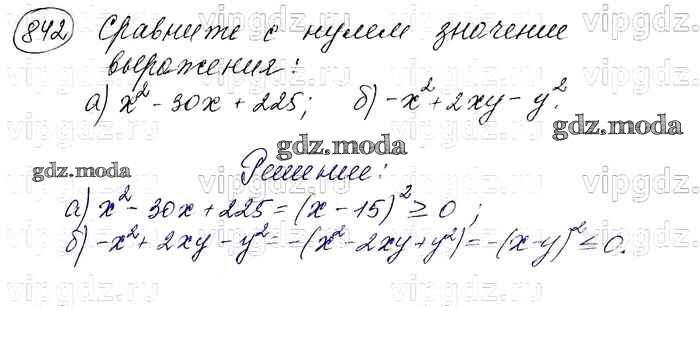 842 Сравните с нулем значение
выражения:
а) x² - 30x + 225; б) -x² + 2xy - y².
gdz.moda
gdz.moda
gdz.moda
Решение:
а) x² - 30x + 225 = (x - 15)² ≥ 0;
б) -x² + 2xy - y² = -(x² - 2xy + y²) = -(x-y)² ≤ 0.
vipgdz.ru